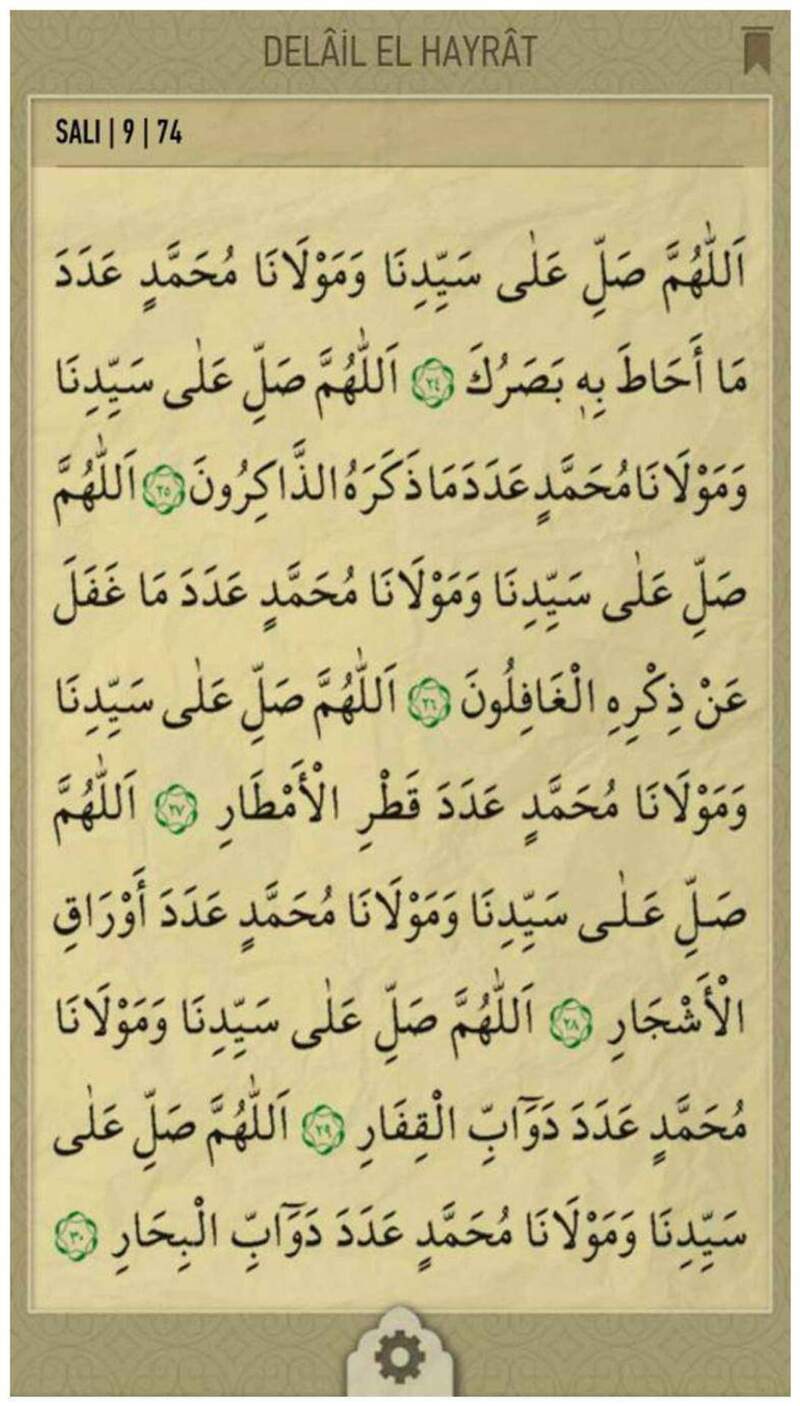 DELÂİL EL HAYRÂT
SALI | 9 | 74
اَللّٰهُمَّ صَلِّ عَلٰى سَيِّدِنَا وَمَوْلَانَا مُحَمَّدٍ عَدَدَ
مَا أَحَاطَ بِهٖ بَصَرُكَ ٢٤ اَللّٰهُمَّ صَلِّ عَلٰى سَيِّدِنَا
وَمَوْلَانَا مُحَمَّدٍ عَدَدَ مَا ذَكَرَهُ الذَّاكِرُونَ ٢٥ اَللّٰهُمَّ
صَلِّ عَلٰى سَيِّدِنَا وَمَوْلَانَا مُحَمَّدٍ عَدَدَ مَا غَفَلَ
عَنْ ذِكْرِهِ الْغَافِلُونَ ٢٦ اَللّٰهُمَّ صَلِّ عَلٰى سَيِّدِنَا
وَمَوْلَانَا مُحَمَّدٍ عَدَدَ قَطْرِ الْأَمْطَارِ ٢٧ اَللّٰهُمَّ
صَلِّ عَلٰى سَيِّدِنَا وَمَوْلَانَا مُحَمَّدٍ عَدَدَ أَوْرَاقِ
الْأَشْجَارِ ٢٨ اَللّٰهُمَّ صَلِّ عَلٰى سَيِّدِنَا وَمَوْلَانَا
مُحَمَّدٍ عَدَدَ دَوَآبِّ الْقِفَارِ ٢٩ اَللّٰهُمَّ صَلِّ عَلٰى
سَيِّدِنَا وَمَوْلَانَا مُحَمَّدٍ عَدَدَ دَوَآبِّ الْبِحَارِ ٣٠